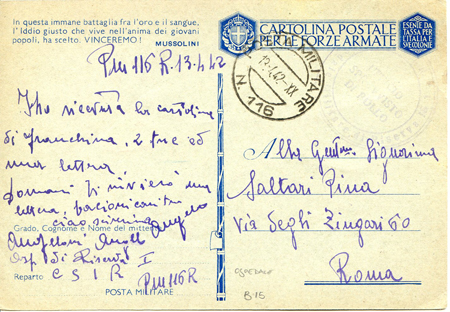 In questa immane battaglia fra l'oro e il sangue,
l'Iddio giusto che vive nell'anima dei giovani
popoli, ha scelto. VINCEREMO!
MUSSOLINI
Pm 116 R. 13.4.42
Ho ricevuta la cartolina
di franchina, 2 tue ed
una lettera
Domani ti invierò una
lettera,
ciao
Angelo
Grado, Cognome e Nome del mittente
Angeloni
Osp. di Riserva I
Reparto C S I R
Pm 116 R
POSTA MILITARE
CARTOLINA POSTALE
PER LE FORZE ARMATE
ESENTE DA
TASSA PER
L'ITALIA E
SVE COLONIE
POSTA MILITARE
13.4.42.XX
N. 116
Alla Gentma Signorina
Saltari Pina
Via degli Zingari 60
Roma
OSPEDALE
B-15